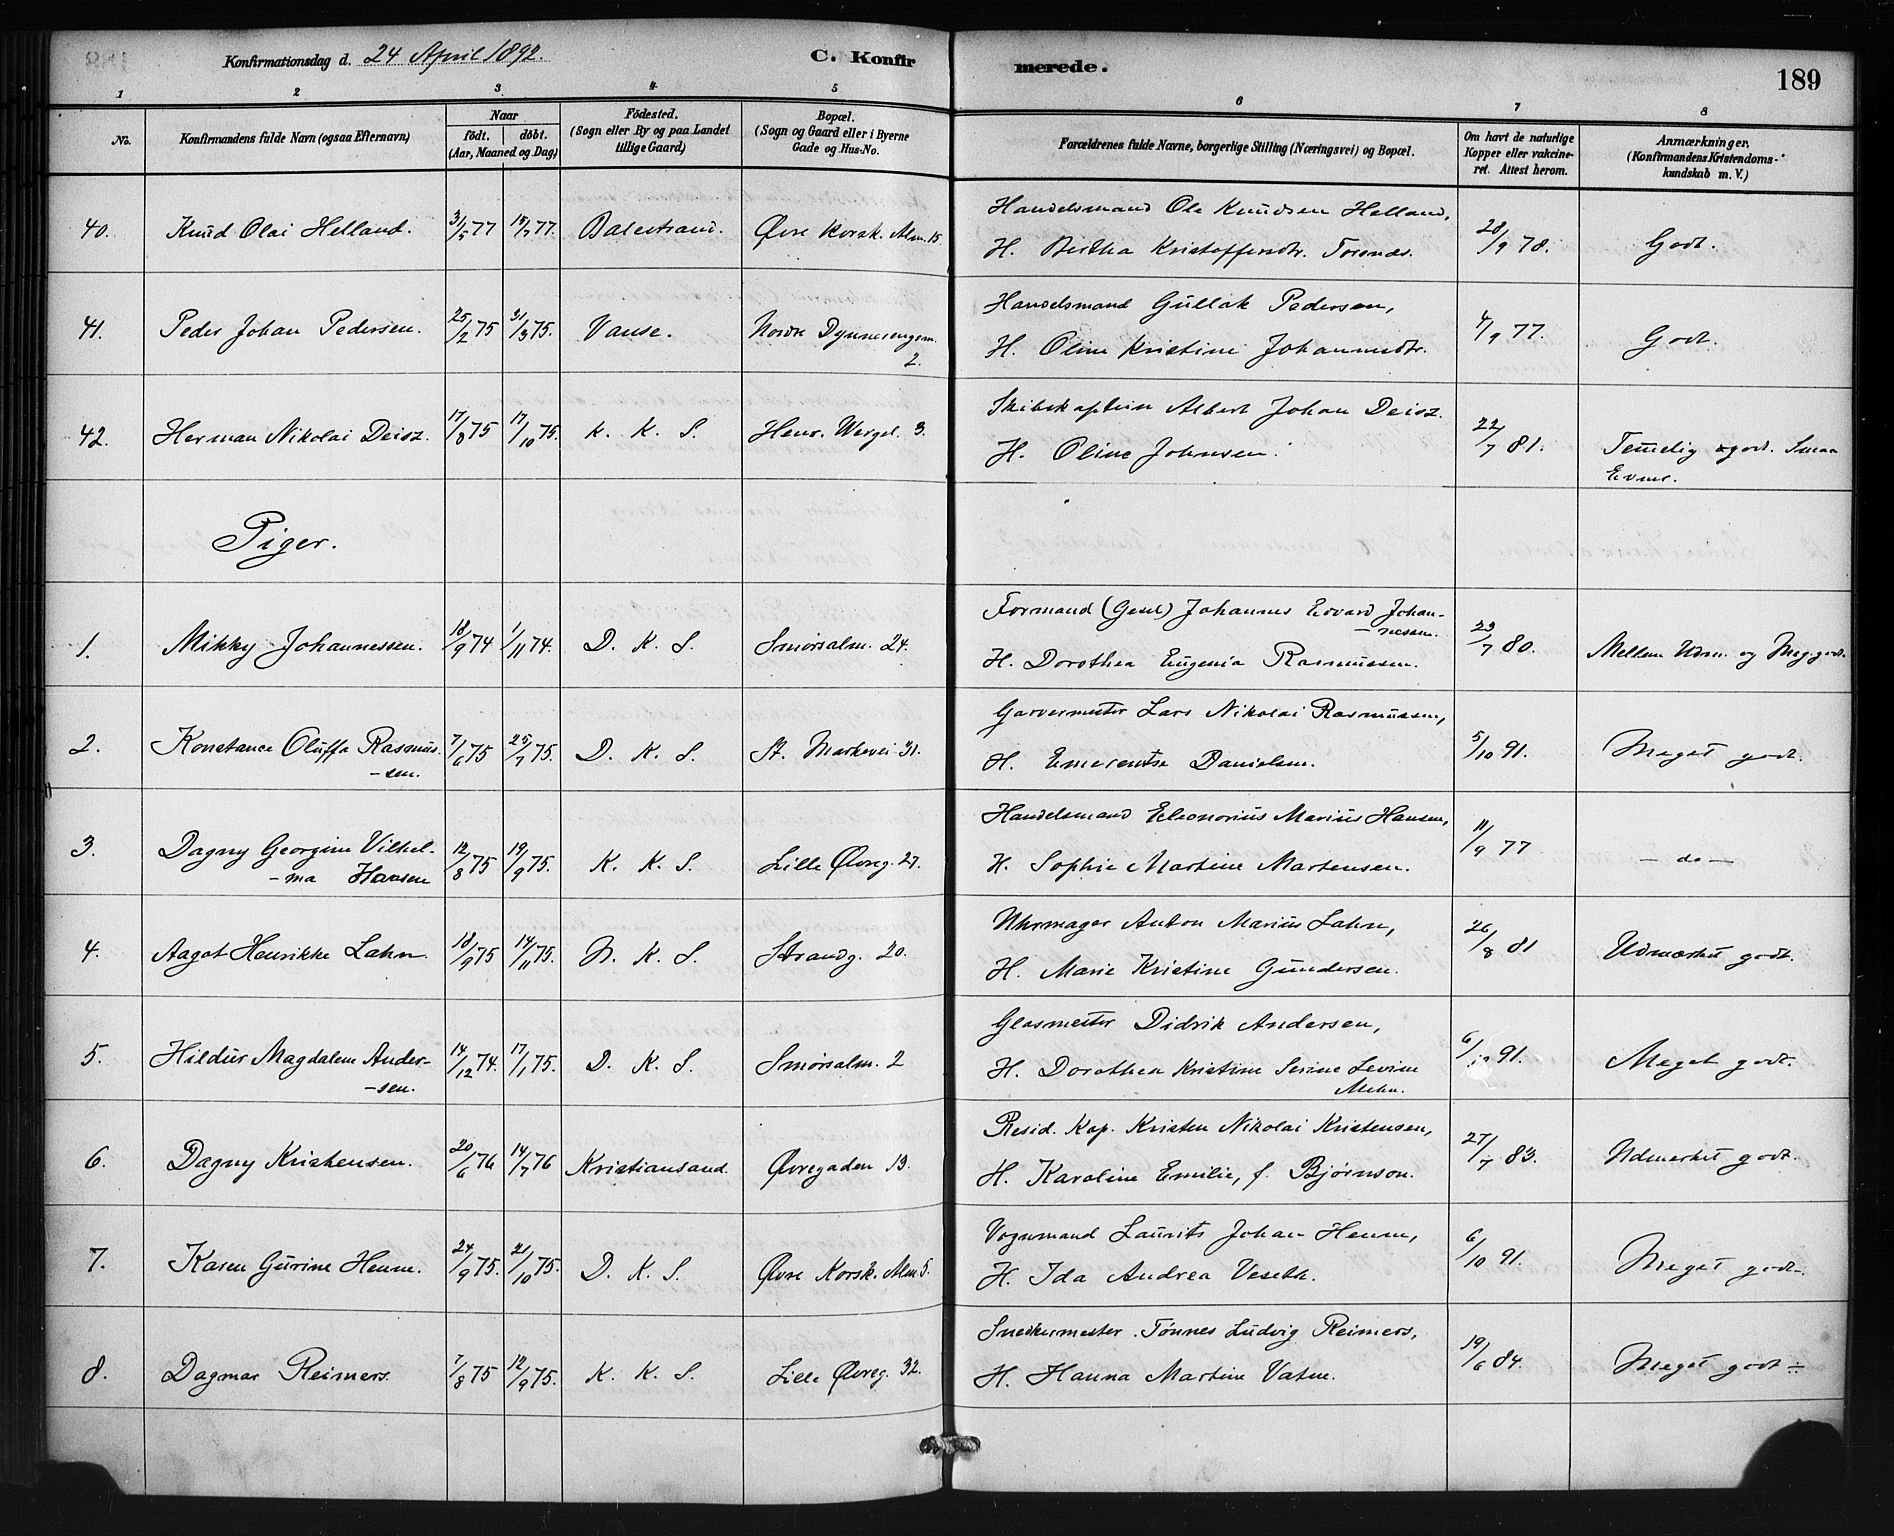 Konfirmationsdag d. 24 April 1892. C. Konfirmerede. 189
1 2 3 4 5 6 7 8
No. Konfirmandens fulde Navn (ogsaa Efternavn) Naar født. døbt. (Aar, Maaned og Dag) Fødested. (Sogn eller By og paa Landet tillige Gaard) Bopæl. (Sogn og Gaard eller i Byerne Gade og Hus-No. Forældrenes fulde Navne, borgerlige Stilling (Næringsvei) og Bopæl. Om havt de naturlige Kopper eller vakcineret. Attest herom. Anmærkninger. (Konfirmandens Kristendomskundskab m. V.)
Handelsmand Ole Knudsen Helland,
40. Knud Olai Helland. 3/5 77 15/7 77. Balestrand. Øvre Korsk. Alm. 15. 28/9 78. Godt.
H. Birtha Kristoffersdtr.
Handelsmand Gullak Pedersen,
41. Peder Johan Pedersen. 25/2 75 31/3 75. Vanse. Nordre Dynnersengsm. 2. 4/9 77. Godt.
H. Oline Kristine Johannesdtr.
Skibskaptein Albert Johan Deisz.
42. Herman Nikolai Deisz. 17/8 75 17/10 75. K. K. S. Henr. Wergel. 3. 22/7 81. Temelig godt. Smaa
H. Oline Johnsen. Evner.
Piger.
Formand (Gesel) Johannes Edvard Johan-
-nessen.
1. Mikky Johannessen. 18/9 74 1/11 74. D. K. S. Smørsalm. 24. 23/7 80. Mellem Udm. og Meg. godt.
H. Dorothea Eugenia Rasmussen.
Garvermester Lars Nikolai Rasmussen,
2. Konstance Oluffa Rasmus- 7/6 75 25/7 75. D. K. S. St. Markevei 31. 5/10 91. Meget godt.
-sen. H. Emerentse Danielsen.
Handelsmand Eleonorius Marius Hansen,
3. Dagny Georgine Vilhel- 12/8 75 19/9 75. K. K. S. Lille Øvreg. 27. 11/9 77 - do -
-ma Hansen H. Sophie Martine Martensen.
Uhrmager Anton Marius Lahn,
4. Aagot Henrikke Lahn. 18/9 75 14/11 75. N. K. S. Strandg. 20. 26/8 81 Udmærket godt.
H. Marie Kristine Gundersen.
Glasmester Didrik Andersen,
5. Hildur Magdalene Ander- 14/12 74. 17/1 75. D. K. S. Smørsalm. 2 6/10 91. Meget godt.
-sen. H. Dorothea Kristine Serine Levine
Mehn.
Resid. Kap. Kristen Nikolai Kristensen,
6. Dagny Kristensen. 20/6 76 14/7 76 Kristiansand. Øvregaden 13. 27/7 83. Udmerket godt.
H. Karoline Emilie, f. Bjørnson.
Vognmand Laurits Johan Henne,
7. Karen Gurine Henne. 24/9 75. 21/10 75. D. K. S. Øvre Korsk. Alm 5. 6/10 91. Meget godt.
H. Ida Andrea Veseth.
Snedkermester Tønnes Ludvig Reimers,
8. Dagmar Reimers. 7/8 75 12/9 75. K. K. S. Lille Øvreg. 32. 19/6 84. Meget godt ÷
H. Hanna Martine Vatne.